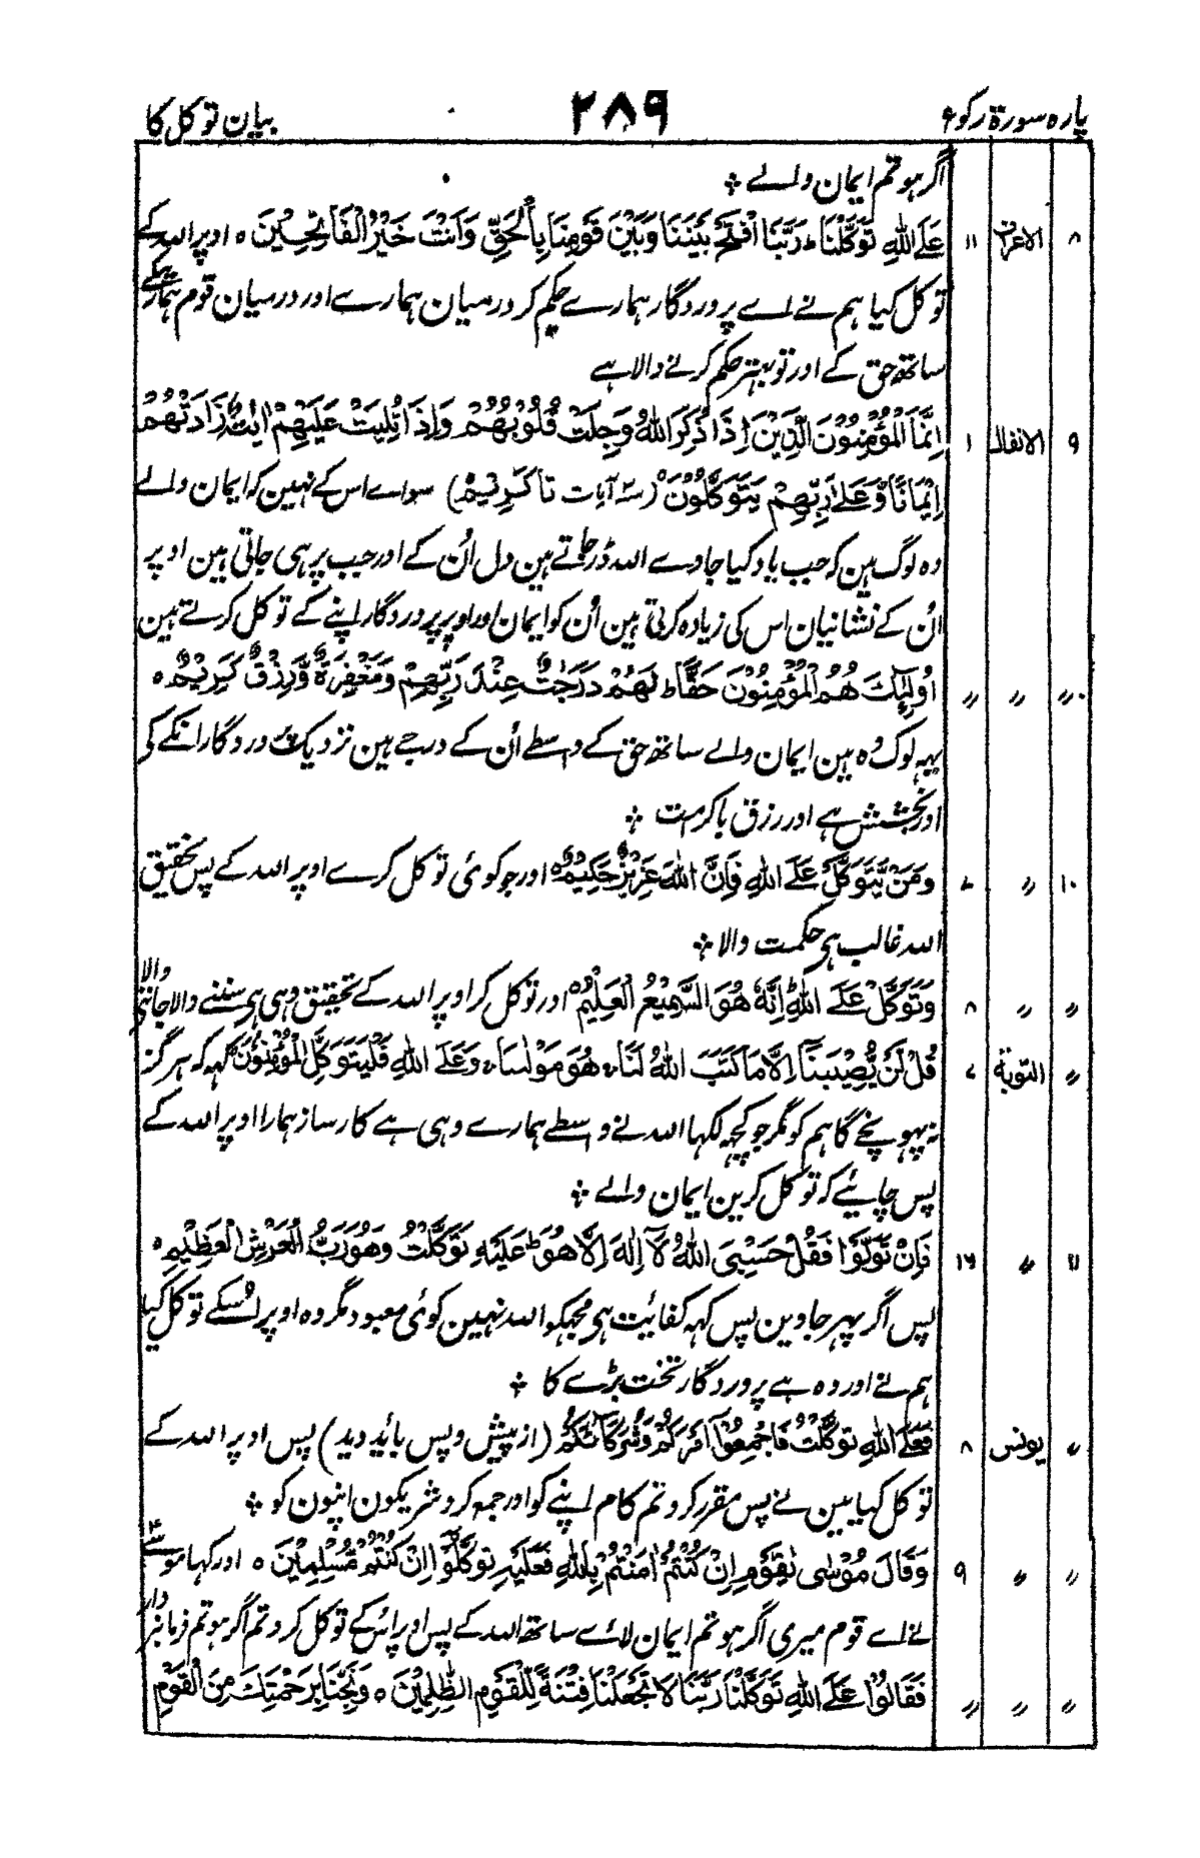 پارہ سورۃ رکوع ۲۸۹ بیان توکل کا
اگر ہو تم ایمان والے ۞
۸ الاعراف ۱۱ عَلَی اللہِ تَوَکَّلْنَا ط رَبَّنَا افْتَحْ بَیْنَنَا وَبَیْنَ قَوْمِنَا بِالْحَقِّ وَاَنْتَ خَیْرُ الْفَاتِحِیْنَ ہ اوپر اللہ کے
توکل کیا ہم نے اے پروردگار ہمارے حکم کر درمیان ہمارے اور درمیان قوم ہماریکے
ساتھ حق کے اور تو بہتر حکم کرنے والا ہے
۹ الانفال ۱ اِنَّمَا الْمُؤْمِنُوْنَ الَّذِیْنَ اِذَا ذُکِرَ اللہُ وَجِلَتْ قُلُوْبُھُمْ وَاِذَا تُلِیَتْ عَلَیْھِمْ اٰیٰتُہٗ زَادَتْھُمْ
اِیْمَانًا وَّعَلٰی رَبِّھِمْ یَتَوَکَّلُوْنَ ہ (سہ آیات تا کریم) سواے اس کے نہین کہ ایمان والے
وہ لوگ ہین کہ جب یاد کیا جاوے اللہ ڈر جاتے ہین دل اُن کے اور جب پڑہی جاتی ہین اوپر
اُن کے نشانیان اس کی زیادہ کرتی ہین اُن کو ایمان اور اوپر پروردگار اپنے کے توکل کرتے ہین
〃 〃 〃 اُولٰٓئِکَ ھُمُ الْمُؤْمِنُوْنَ حَقًّا ط لَھُمْ دَرَجٰتٌ عِنْدَ رَبِّھِمْ وَمَغْفِرَۃٌ وَّرِزْقٌ کَرِیْمٌ ہ
یہہ لوگ وُہ ہین ایمان والے ساتھ حق کے واسطے اُن کے درجے ہین نزدیک پروردگار انکے کی
اور بخشش ہے اور رزق باکرامت ۞
۱۰ 〃 ۷ وَمَنْ یَّتَوَکَّلْ عَلَی اللہِ فَاِنَّ اللہَ عَزِیْزٌ حَکِیْمٌ ہ اور جو کوئی توکل کرے اوپر اللہ کے پس تحقیق
اللہ غالب ہی حکمت والا ۞
〃 〃 ۸ وَتَوَکَّلْ عَلَی اللہِ ط اِنَّہٗ ھُوَ السَّمِیْعُ الْعَلِیْمُ ہ اور توکل کر اوپر اللہ کے تحقیق وہی ہی سننے والا جاننے والا
〃 التوبۃ ۷ قُلْ لَّنْ یُّصِیْبَنَآ اِلَّا مَا کَتَبَ اللہُ لَنَا ھُوَ مَوْلٰىنَا وَعَلَی اللہِ فَلْیَتَوَکَّلِ الْمُؤْمِنُوْنَ کہہ کہ ہرگز
نہ پہونچے گا ہم کو مگر جو کچہہ لکہا اللہ نے واسطے ہمارے وہی ہے کارساز ہمارا اوپر اللہ کے
پس چاہیئے کہ توکل کرین ایمان والے ۞
۱۱ 〃 ۱۶ فَاِنْ تَوَلَّوْا فَقُلْ حَسْبِیَ اللہُ لَآ اِلٰہَ اِلَّا ھُوَ ط عَلَیْہِ تَوَکَّلْتُ وَھُوَ رَبُّ الْعَرْشِ الْعَظِیْمِ ہ
پس اگر پہر جاوین پس کہہ کفایت ہی مجہکو اللہ نہین کوئی معبود مگر وہ اوپر اُسکے توکل کیا
ہم نے اور وہ ہے پروردگار تخت بڑے کا ۞
〃 یونس ۸ فَعَلَی اللہِ تَوَکَّلْتُ فَاَجْمِعُوْٓا اَمْرَکُمْ وَشُرَکَآءَکُمْ (از پیش و پس باید دید) پس اوپر اللہ کے
توکل کیا مین نے پس مقرر کرو تم کام اپنے کو اور جمع کرو شریکون اپنون کو ۞
〃 〃 ۹ وَقَالَ مُوْسٰی یٰقَوْمِ اِنْ کُنْتُمْ اٰمَنْتُمْ بِاللہِ فَعَلَیْہِ تَوَکَّلُوْٓا اِنْ کُنْتُمْ مُّسْلِمِیْنَ ہ اور کہا موسےٰ
نے اے قوم میری اگر ہو تم ایمان لائے ساتھ اللہ کے پس اوپر اُس کے توکل کرو تم اگر ہو تم فرمانبردار
〃 〃 〃 فَقَالُوْا عَلَی اللہِ تَوَکَّلْنَا رَبَّنَا لَا تَجْعَلْنَا فِتْنَۃً لِّلْقَوْمِ الظّٰلِمِیْنَ ہ وَنَجِّنَا بِرَحْمَتِکَ مِنَ الْقَوْمِ